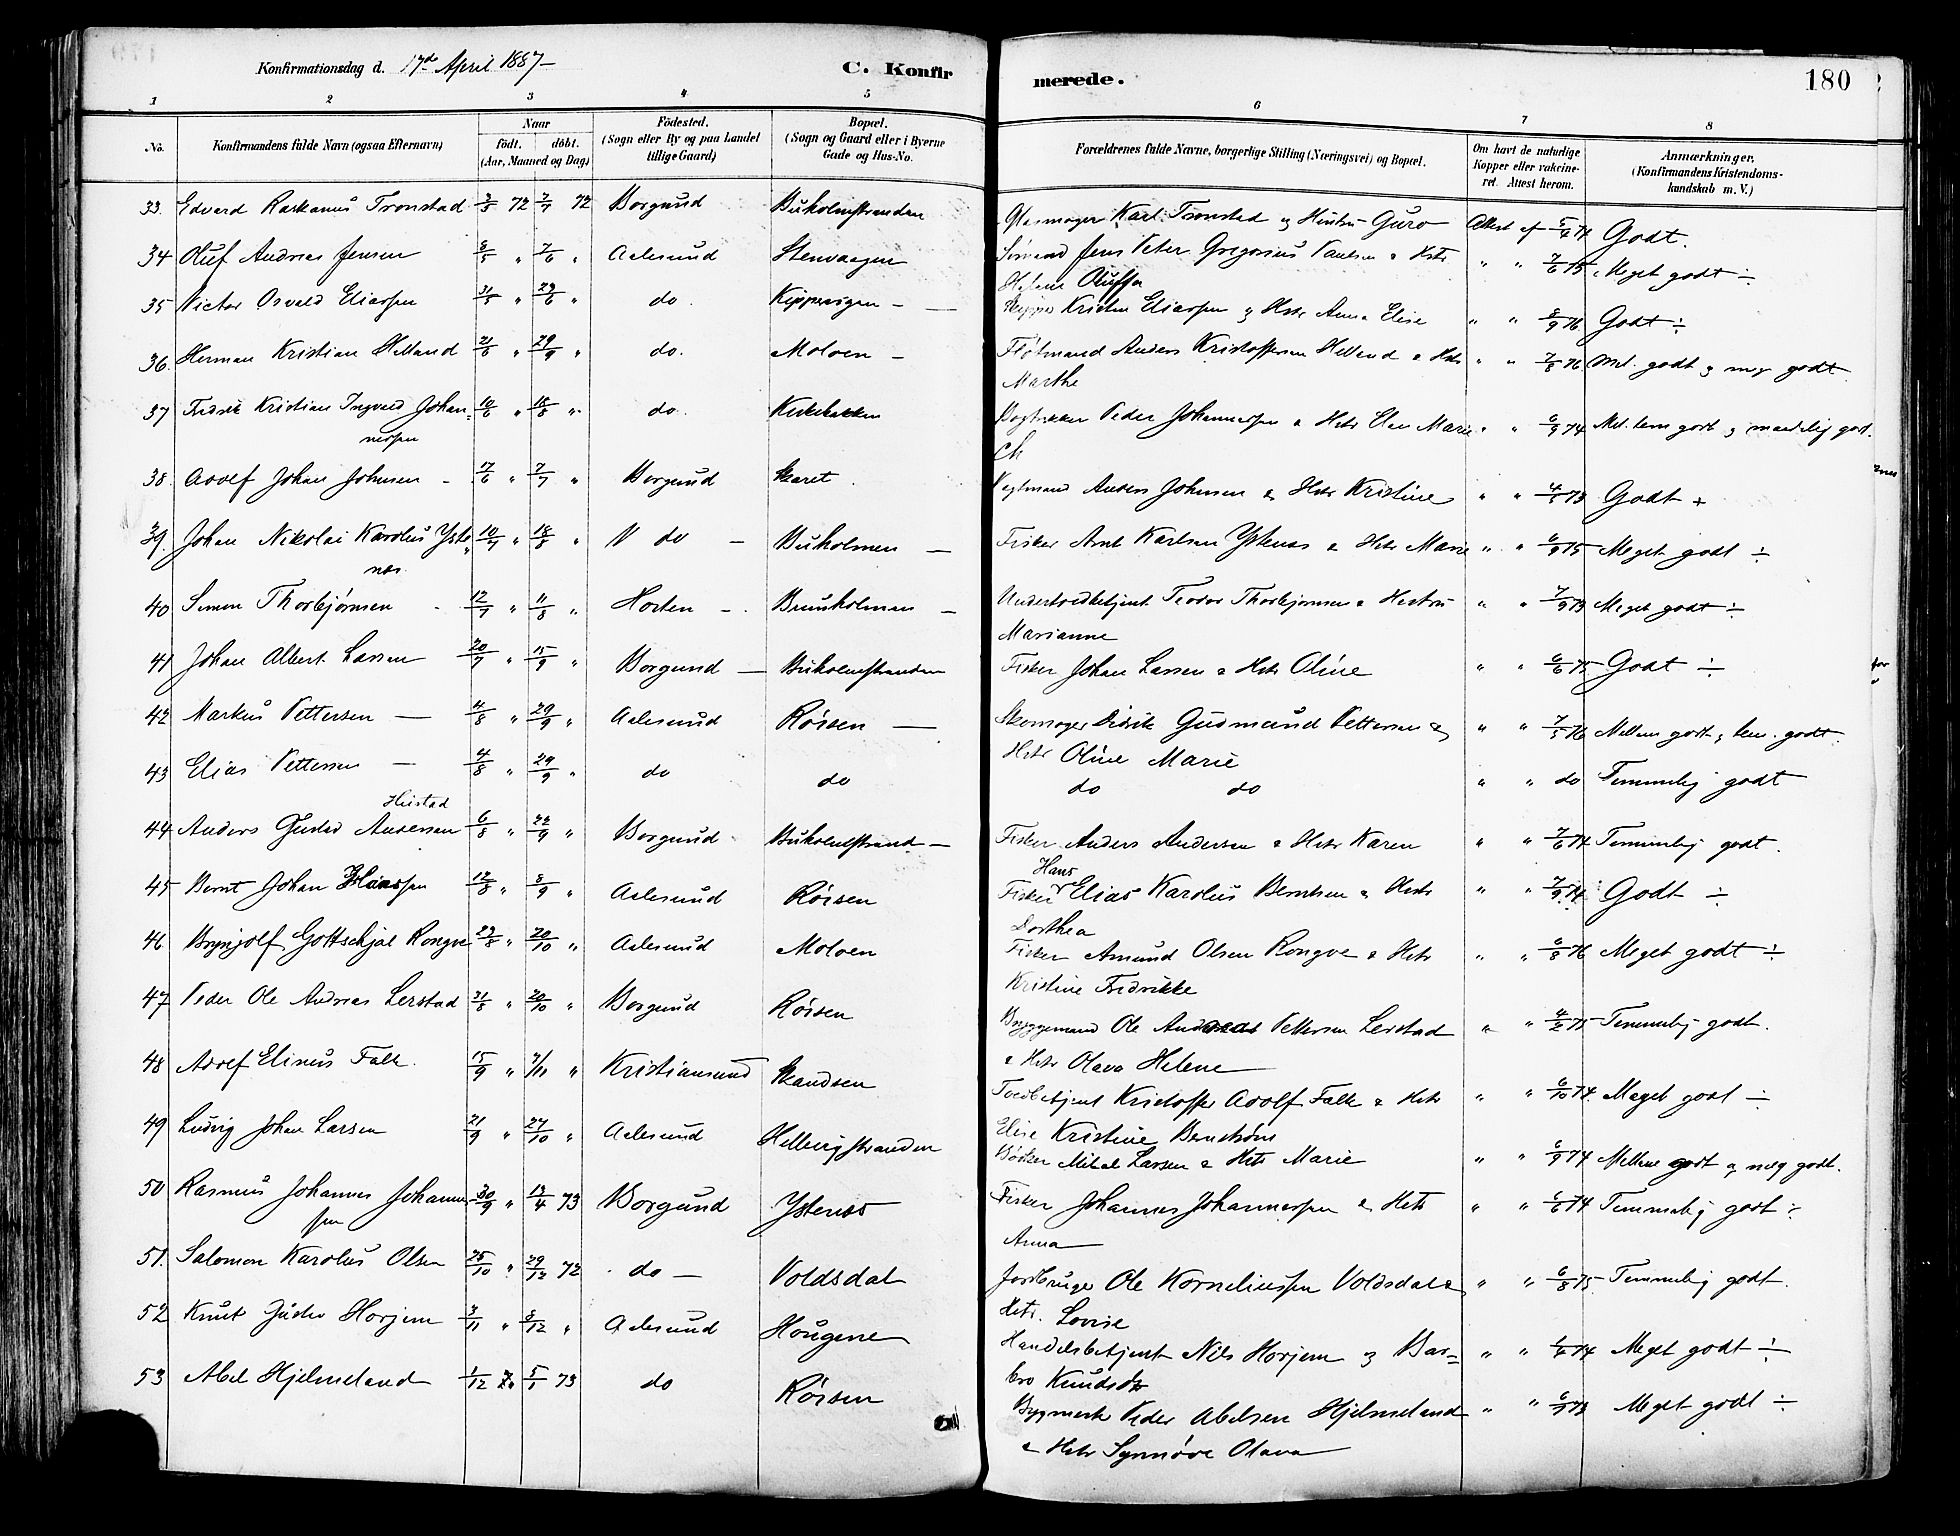 Konfirmationsdag d. 17de April 1887 C. Konfirmerede. 180
1 2 3 4 5 6 7 8
No. Konfirmandens fulde Navn (ogsaa Efternavn) Naar født. døbt. (Aar, Maaned og Dag) Fødested. (Sogn eller By og paa Landet tillige Gaard) Bopæl. (Sogn og Gaard eller i Byerne Gade og Hus-No. Forældrenes fulde Navne, borgerlige Stilling (Næringsvei) og Bopæl. Om havt de naturlige Kopper eller vakcineret. Attest herom. Anmærkninger. (Konfirmandens Kristendomskundskab m. V.)
33. Edvard Tronstad 72 72 Borgund Buholmstranden Karl Tronstad og Hustru Guro Attest af Godt.
34 Oluf Andreas Jensen 8/5 " 7/6 " Aalesund Stenvaagen Sømand Jens Peter Gregorius & Hstr " " 7/6 75 Meget godt ÷
Helene Oluffa
35 Victor Osvald Eliassen 31/5 " 29/6 " do. Kippervigen — Skipper Kristen Eliassen og Hstr Anna Elise " " 8/9 76 Godt ÷
36. Herman Kristian Helland 21/6 " 29/9 " do. Moloen — Anders Kristoffersen Helland & Hstr " " 7/8 76 Mel. godt og meg godt
Marthe
37 Fredrik Kristian Ingvald Johan= 10/6 " 18/8 " do. Kirkebakken Peder Johannessen & Hstr Elen Marie " " 6/9 74 Mel. tem godt og maadelig godt.
nessen
38. Adolf Johan Johnsen 17/6 " 7/7 " Borgund Skaret Anders Johnsen & Hstr Kristine " " 4/5 73 Godt +
39. Johan Nikolai Karolus Yste= 10/7 " 18/8 " do — Buholmen — Fisker Arnt Karlsen Ystenæs & Hstr Marie " " 6/9 75 Meget godt ÷
næs.
40 Simon Thorbjørnsen 12/7 " 11/8 " Horten — Buholmen — Undertoldbetjent Teodor Thorbjørnsen & Hustru " " 7/9 73 Meget godt ÷
Marianne
41 Johan Albert Larsen 20/7 " 15/9 " Borgund — Buholmstranden Fisker Johan Larsen & Hstr Oline " " 6/6 75 Godt ÷
42 Markus Pettersen — 4/8 " 29/9 " Aalesund Røisen — Skomager Didrik Gudmund Pettersen & " " 7/5 76 Mellem godt og tem. godt.
Hstr Oline Marie
43 Elias Pettersen — 4/8 " 29/9 " do do do do " " do Temmelig godt
Hustad
44 Anders Gustav Andersen 6/8 " 22/9 " Borgund Buholmstrand — Fisker Anders Andersen & Hstr Karen " " 7/6 74 Temmelig godt.
45 Bernt Johan Hanssen 12/8 " 8/9 " Aalesund Røisen Fisker Hans Elias Karolus Berntsen & Hstr " " 7/9 74 Godt ÷
Dorthea
46 Brynjolf Gottschjal Rongve 23/8 " 20/10 " Aalesund Moloen Fisker Amund Olsen Rongve & Hstr " " 6/8 76 Meget godt ÷
Kristine Fredrikke
47 Peder Ole Andreas Lerstad 31/8 " 20/10 " Borgund Røisen Bryggemand Ole Andreas Pettersen Lerstad " " 4/2 75 Temmelig godt.
& Hstr Olava Helene
48 Adolf Elinus Falk 15/9 " " Kristiansund Skandsen Toldbetjent Kristoffer Adolf Falk & Hstr " " 6/10 74 Meget godt ÷
Elise Kristine
49 Ludvig Johan Larsen 21/9 " 27/10 " Aalesund Hellebrigstranden Bødker Mikal Larsen & Hstr Marie " " 6/9 74 Mellem godt og meg godt.
50 Rasmus Johannes Johannes 30/9 " 13/4 73 Borgund Ystenæs Fisker Johannes Johannessen & Hstr " " 6/6 74 Temmelig godt ÷
sen Anna
51. Salomon Karolus Olsen 25/10 " 29/12 72 do — Voldsdal Jordbruger Ole Korneliussen Voldsdal & " " 6/8 75 Temmelig godt.
Hstr. Lovise
52 Knut Horjem 3/11 " 8/12 " Aalesund Hougene Handelsbetjent Nils Horjem og Bar= " " 74 Meget godt ÷
bro Knudsdr
53 Abel Hjelmeland 1/12 72 5/1 73 do Røisen Bygmester Peder Abelsen Hjelmeland " " 73 Meget godt ÷
& Hstr Synnøve Olava